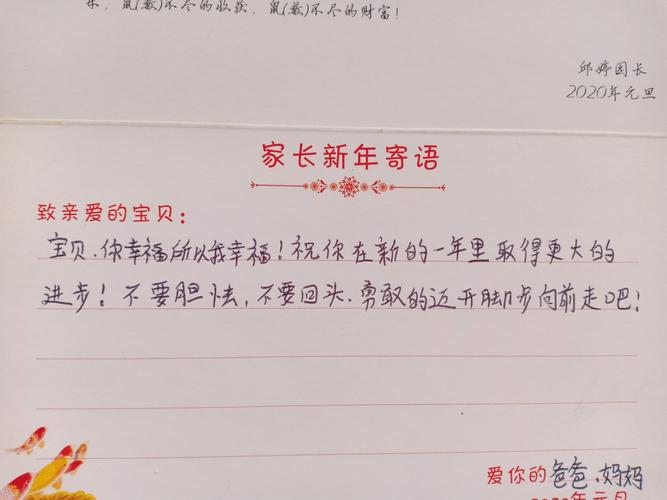 乐，鼠(数)不尽的收获，鼠(数)不尽的财富！
邱婷园长
2020年元旦
家长新年寄语
致亲爱的宝贝：
宝贝.你幸福所以我幸福！祝你在新的一年里取得更大的
进步！不要胆怯,不要回头.勇敢的迈开脚步向前走吧！
爱你的爸爸.妈妈
2020年元月